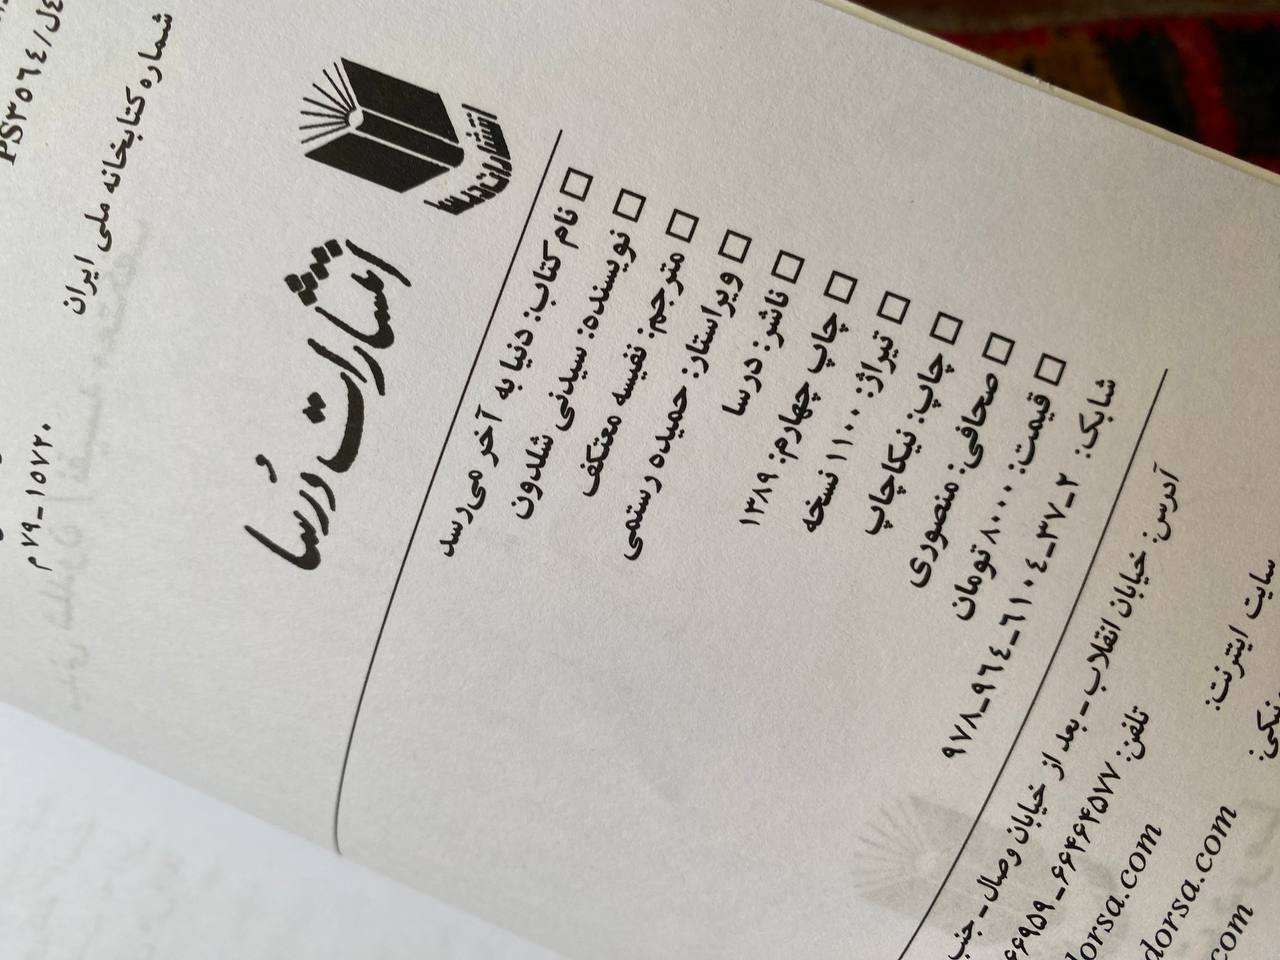 PS۳٥٦٤/
شماره کتابخانه ملی ایران
۱٥۷۲۰-۷۹م
انتشارات درسا
انتشارات دُرسا
□ نام کتاب: دنیا به آخر می‌رسد
□ نویسنده: سیدنی شلدون
□ مترجم: نفیسه معتکف
□ ویراستار: حمیده رستمی
□ ناشر: درسا
□ چاپ چهارم: ۱۳۸۹
□ تیراژ: ۱۱۰۰ نسخه
□ چاپ: نیکاچاپ
□ صحافی: منصوری
□ قیمت: ۸۰۰۰ تومان
شابک: ۲-۳۷-٦۱۰٤-۹٦٤-۹۷۸
آدرس: خیابان انقلاب - بعد از خیابان وصال - جنب
تلفن: ۶۶۴۶۴۵۷۷ - ۶۶۹۵۹
سایت اینترنت:
dorsa.com
dorsa.com
com